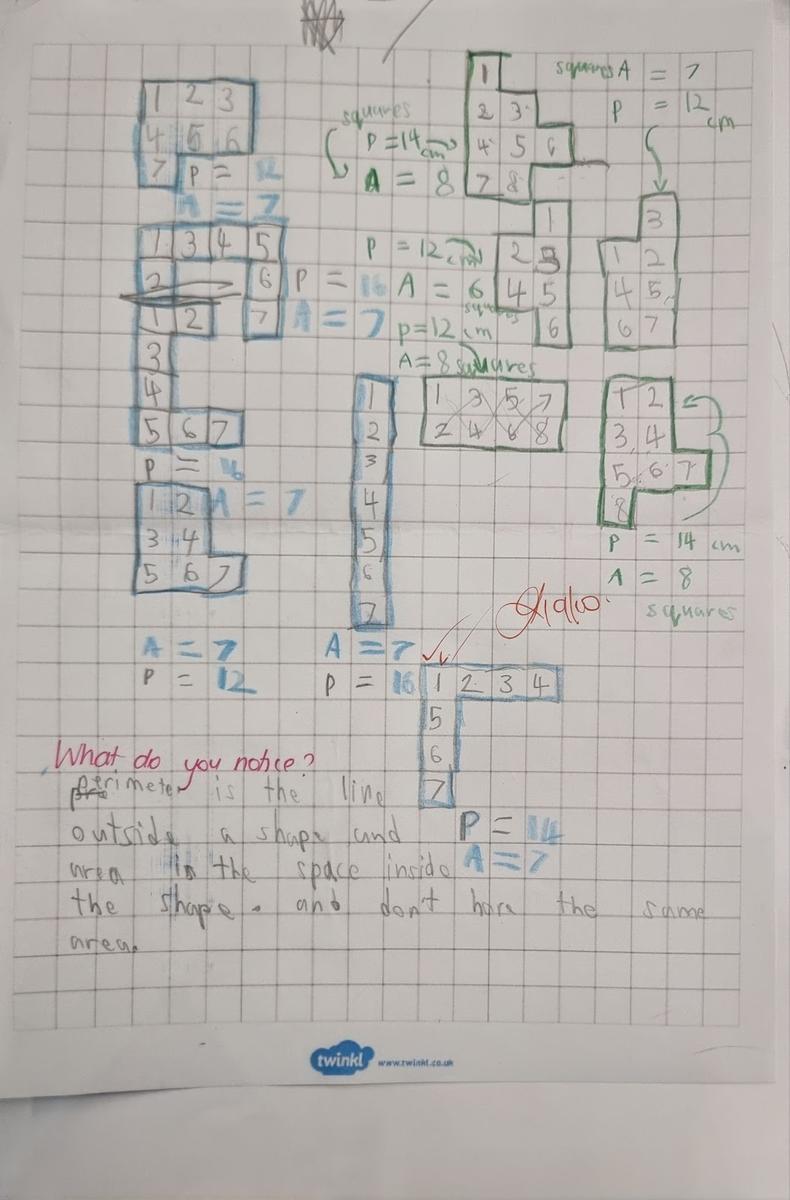 1 2 3
4 5 6
7 P = 12
A = 7
1 3 4 5
2 6 P = 16
7 A = 7
1 2
3
4
5 6 7
P = 16
1 2 A = 7
3 4
5 6 7
A = 7
P = 12
squares
P = 14 cm
A = 8
1
2 3
4 5 6
7 8
squares A = 7
P = 12
cm
3
1 2
4 5
6 7
P = 12 cm
A = 6
squares
1
2 3
4 5
6
P = 12 cm
A = 8 squares
1 3 5 7
2 4 6 8
1 2
3 4
5 6 7
8
P = 14 cm
A = 8
squares
1
2
3
4
5
6
7
A = 7
P = 16
1 2 3 4
5
6
7
P = 14
A = 7
What do you notice?
perimeter is the line
outside a shape and
area is the space inside
the shape. and don't have the same
area.
twinkl www.twinkl.co.uk